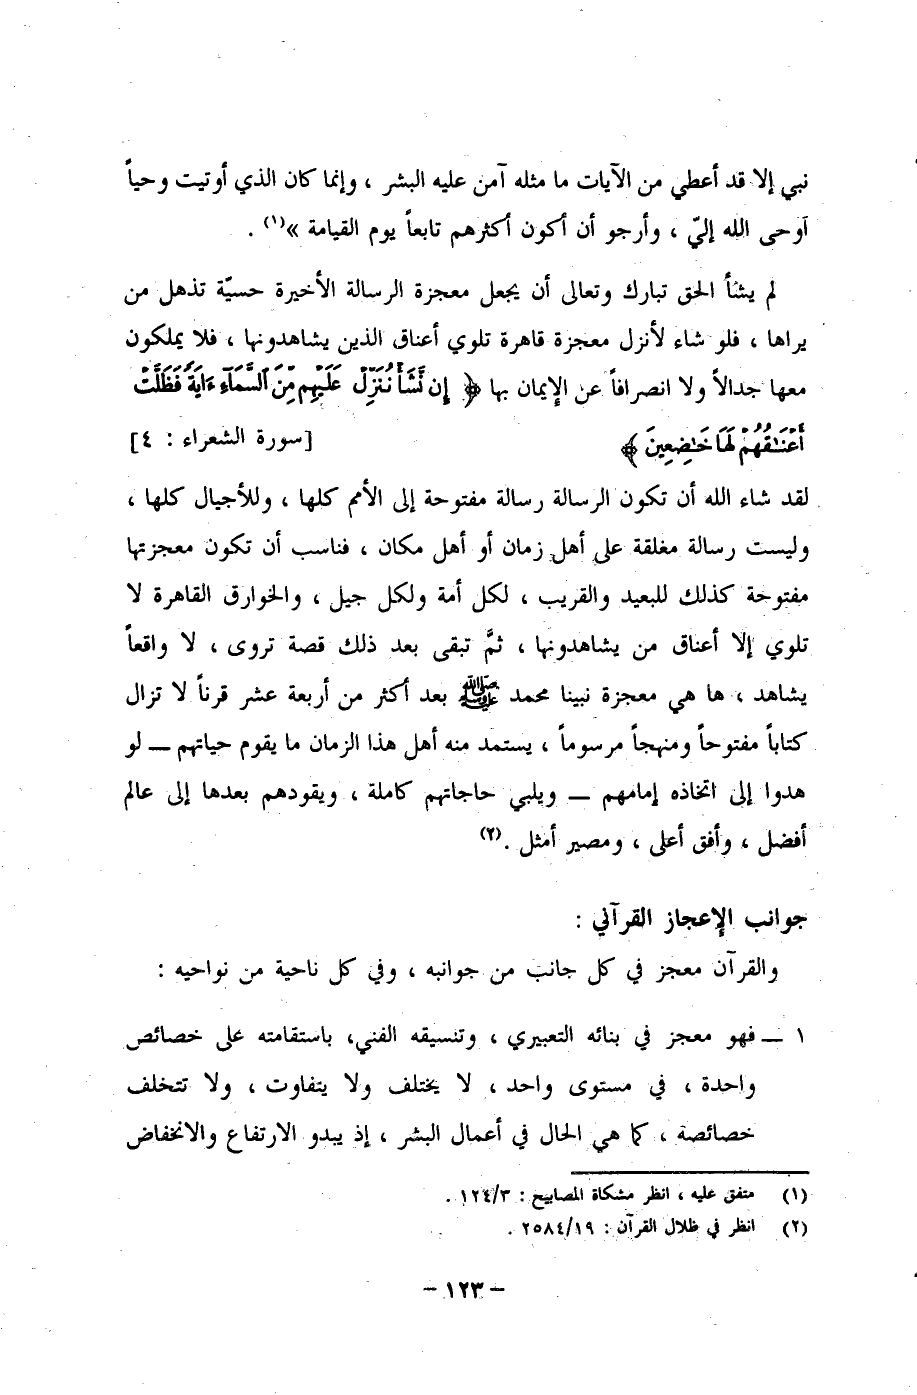 نبي إلا قد أعطي من الآيات ما مثله آمن عليه البشر ، وإنما كان الذي أوتيت وحياً
أوحى الله إليّ ، وأرجو أن أكون أكثرهم تابعاً يوم القيامة »(١) .
لم يشأ الحق تبارك وتعالى أن يجعل معجزة الرسالة الأخيرة حسيّة تذهل من
يراها ، فلو شاء لأنزل معجزة قاهرة تلوي أعناق الذين يشاهدونها ، فلا يملكون
معها جدالاً ولا انصرافاً عن الإيمان بها ﴿ إِن نَّشَأْ نُنَزِّلْ عَلَيْهِم مِّنَ ٱلسَّمَآءِ ءَايَةً فَظَلَّتْ
أَعْنَـٰقُهُمْ لَهَا خَـٰضِعِينَ ﴾ [سورة الشعراء : ٤]
لقد شاء الله أن تكون الرسالة رسالة مفتوحة إلى الأمم كلها ، وللأجيال كلها ،
وليست رسالة مغلقة على أهل زمان أو أهل مكان ، فناسب أن تكون معجزتها
مفتوحة كذلك للبعيد والقريب ، لكل أمة ولكل جيل ، والخوارق القاهرة لا
تلوي إلا أعناق من يشاهدونها ، ثمَّ تبقى بعد ذلك قصة تروى ، لا واقعاً
يشاهد ، ها هي معجزة نبينا محمد ﷺ بعد أكثر من أربعة عشر قرناً لا تزال
كتاباً مفتوحاً ومنهجاً مرسوماً ، يستمد منه أهل هذا الزمان ما يقوم حياتهم — لو
هدوا إلى اتخاذه إمامهم — ويلبي حاجاتهم كاملة ، ويقودهم بعدها إلى عالم
أفضل ، وأفق أعلى ، ومصير أمثل .(٢)
جوانب الإعجاز القرآني :
والقرآن معجز في كل جانب من جوانبه ، وفي كل ناحية من نواحيه :
١ — فهو معجز في بنائه التعبيري ، وتنسيقه الفني، باستقامته على خصائص
واحدة ، في مستوى واحد ، لا يختلف ولا يتفاوت ، ولا تتخلف
خصائصة ، كما هي الحال في أعمال البشر ، إذ يبدو الارتفاع والانخفاض
(١) متفق عليه ، انظر مشكاة المصابيح : ١٢٤/٣ .
(٢) انظر في ظلال القرآن : ٢٥٨٤/١٩ .
- ١٢٣ -